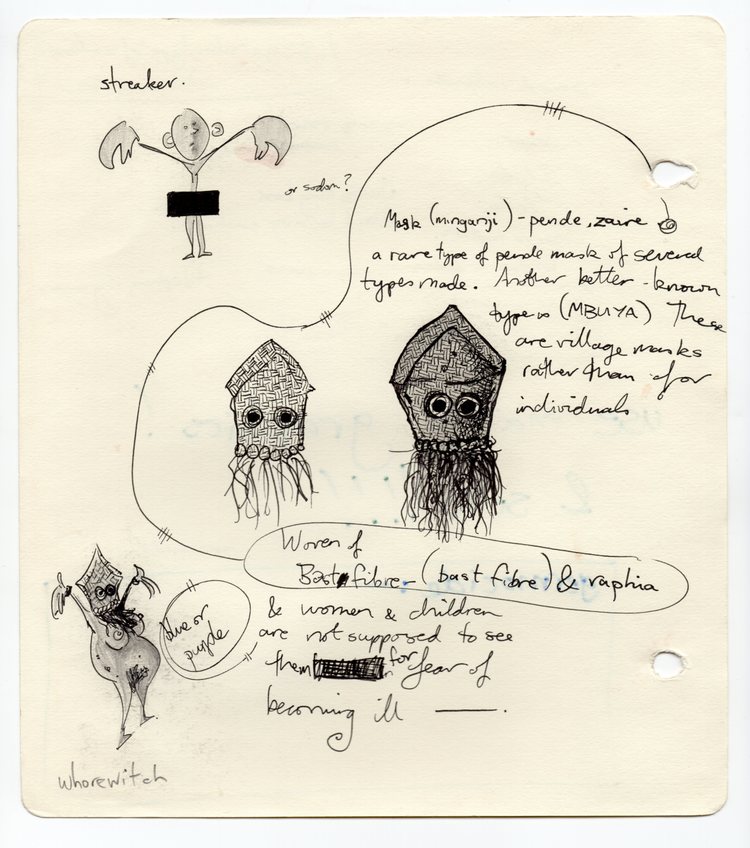 streaker.
or sodom?
Mask (minganji) - pende, zaire
a rare type of pende mask of several
types made. Another better-known
type is (MBUYA) These
are village masks
rather than for
individuals
Woven of
Bast fibre - (bast fibre) & raphia
& women & children
are not supposed to see
them for fear of
becoming ill
blue or
purple
whorewitch